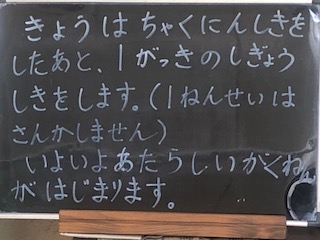 きょうはちゃくにんしきを
したあと、1がっきのしぎょう
しきをします。(1ねんせいは
さんかしません)
いよいよあたらしいがくねん
がはじまります。